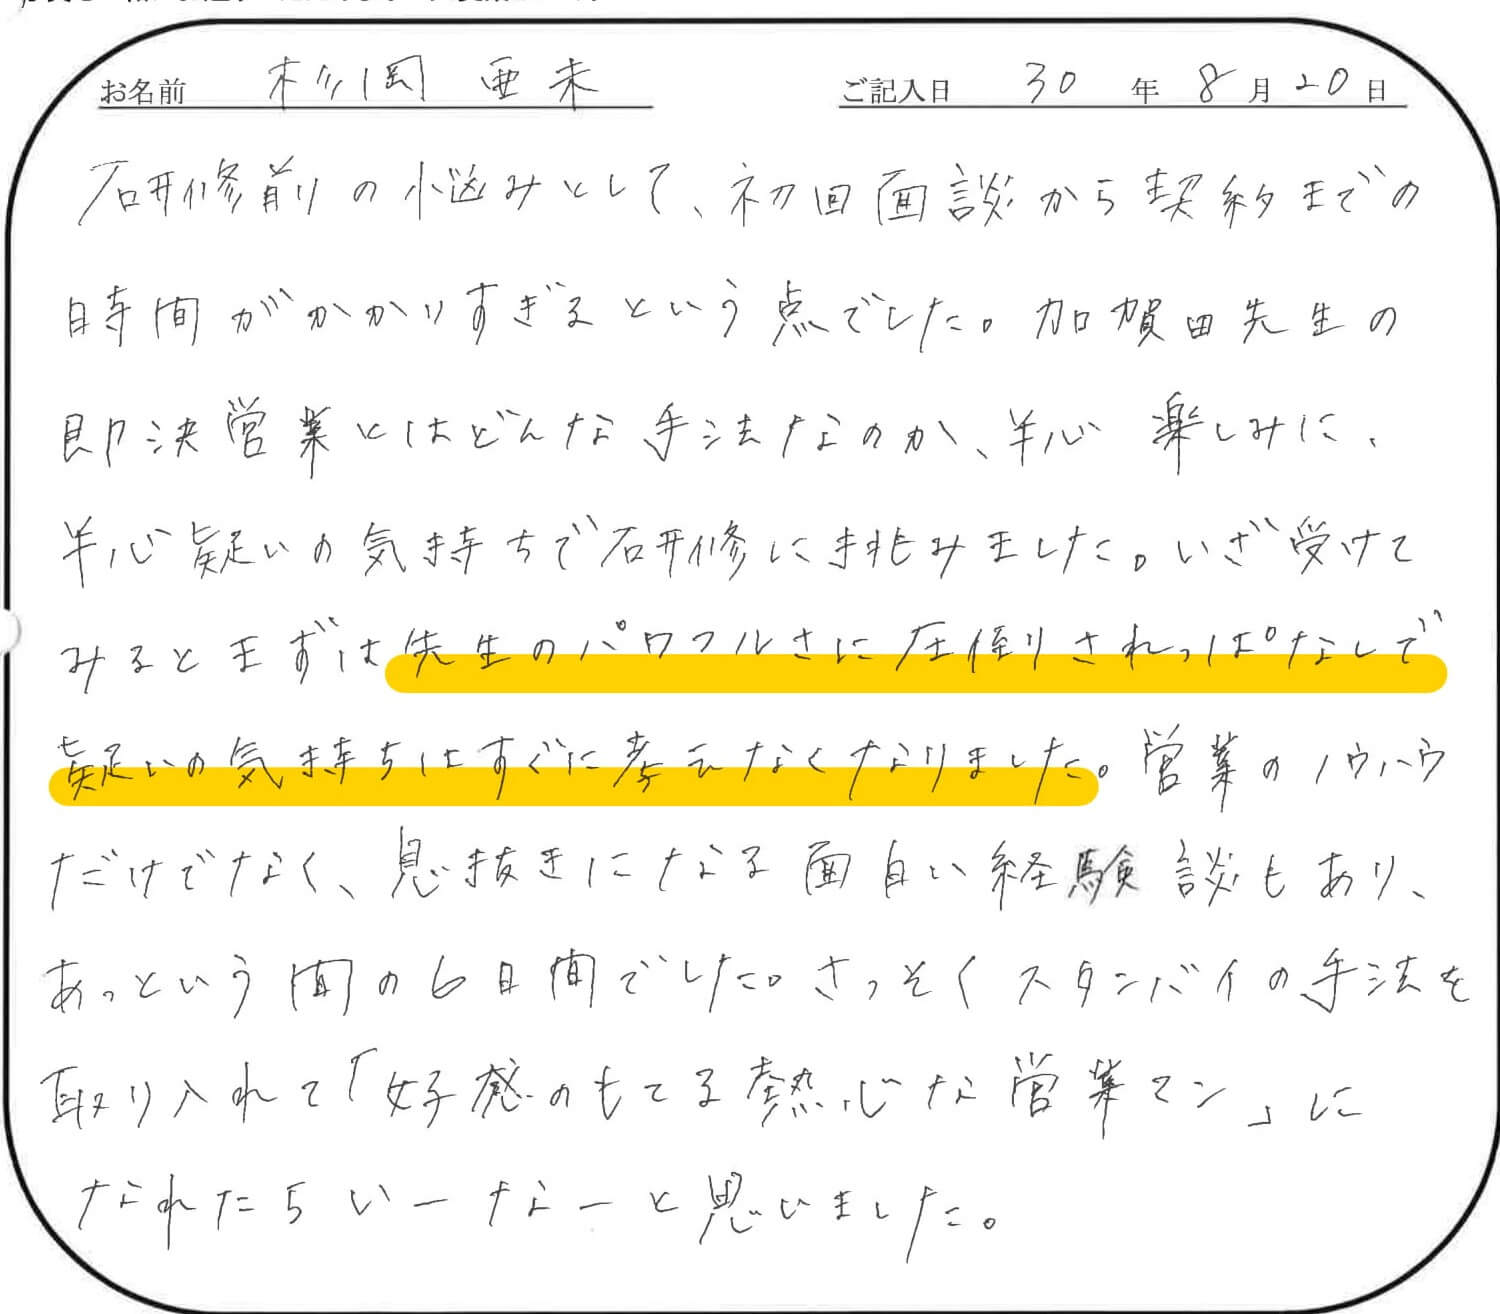 お名前 杉岡 亜未 ご記入日 30 年 8 月 20 日
研修前の悩みとして、初回面談から契約までの
時間がかかりすぎるという点でした。加賀田先生の
即決営業とはどんな手法なのか、半心 楽しみに、
半心疑いの気持ちで研修に挑みました。いざ受けて
みるとまずは先生のパワフルさに圧倒りされっぱなしで
疑いの気持ちはすぐに考えなくなりました。営業のノウハウ
だけでなく、息抜きになる面白い経験談もあり、
あっという間の6日間でした。さっそくスタンバイの手法を
取り入れて「好感のもてる熱心な営業マン」に
なれたらいーなーと思いました。